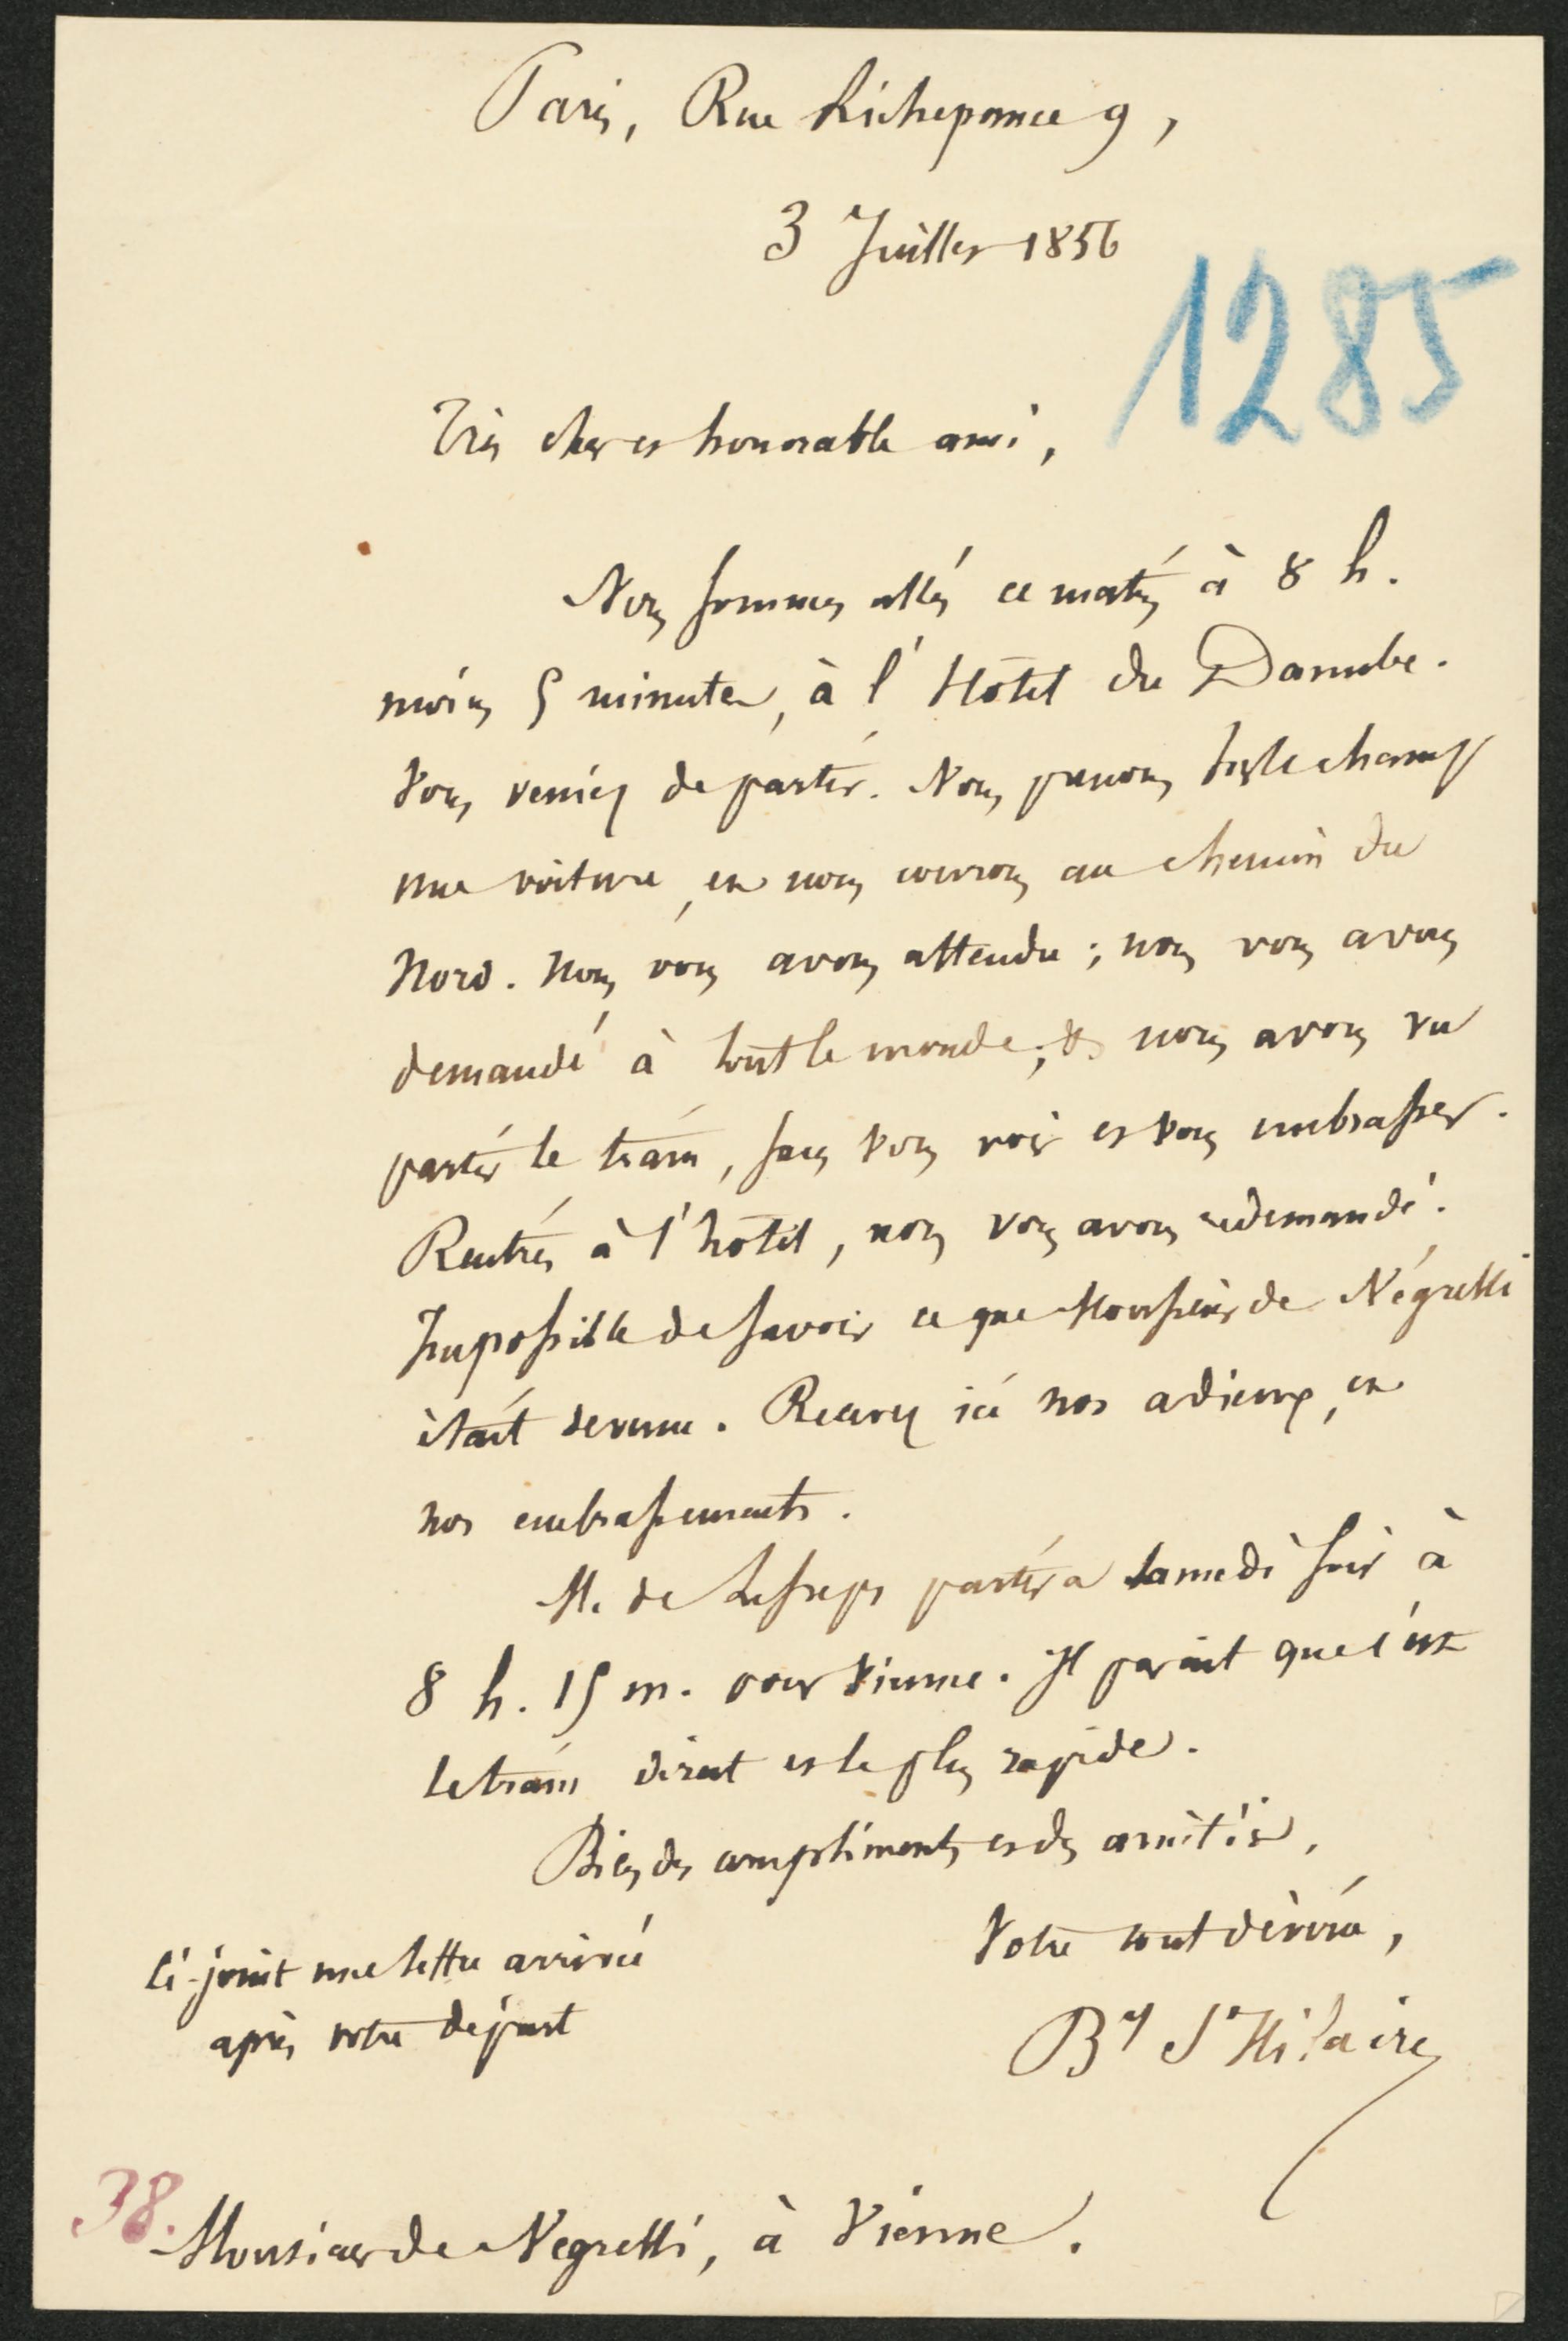 Paris, Rue Richepance 9,
3 Juillet 1856
1285
Très cher et honorable ami,
Nous sommes allés ce matin à 8 h.
moins 5 minutes, à l'Hôtel du Danube.
Vous veniez de partir. Nous prenons sur le champ
une voiture, et nous courons au chemin du
Nord. Nous vous avons attendu ; nous vous avons
demandé à tout le monde ; & nous avons vu
partir le train, sans vous voir et vous embrasser.
Rentrés à l'hôtel, nous vous avons redemandé.
Impossible de savoir ce que Monsieur de Négrelli
était devenu. Recevez ici nos adieux, et
nos embrassements.
M. de Lesseps partira samedi soir à
8 h. 15 m. pour Vienne. Il paraît que c'est
le train direct et le plus rapide.
Bien des compliments et des amitiés,
Votre tout dévoué,
By St Hilaire
Ci-joint une lettre arrivée
après votre départ
38.
Monsieur de Negrelli, à Vienne.